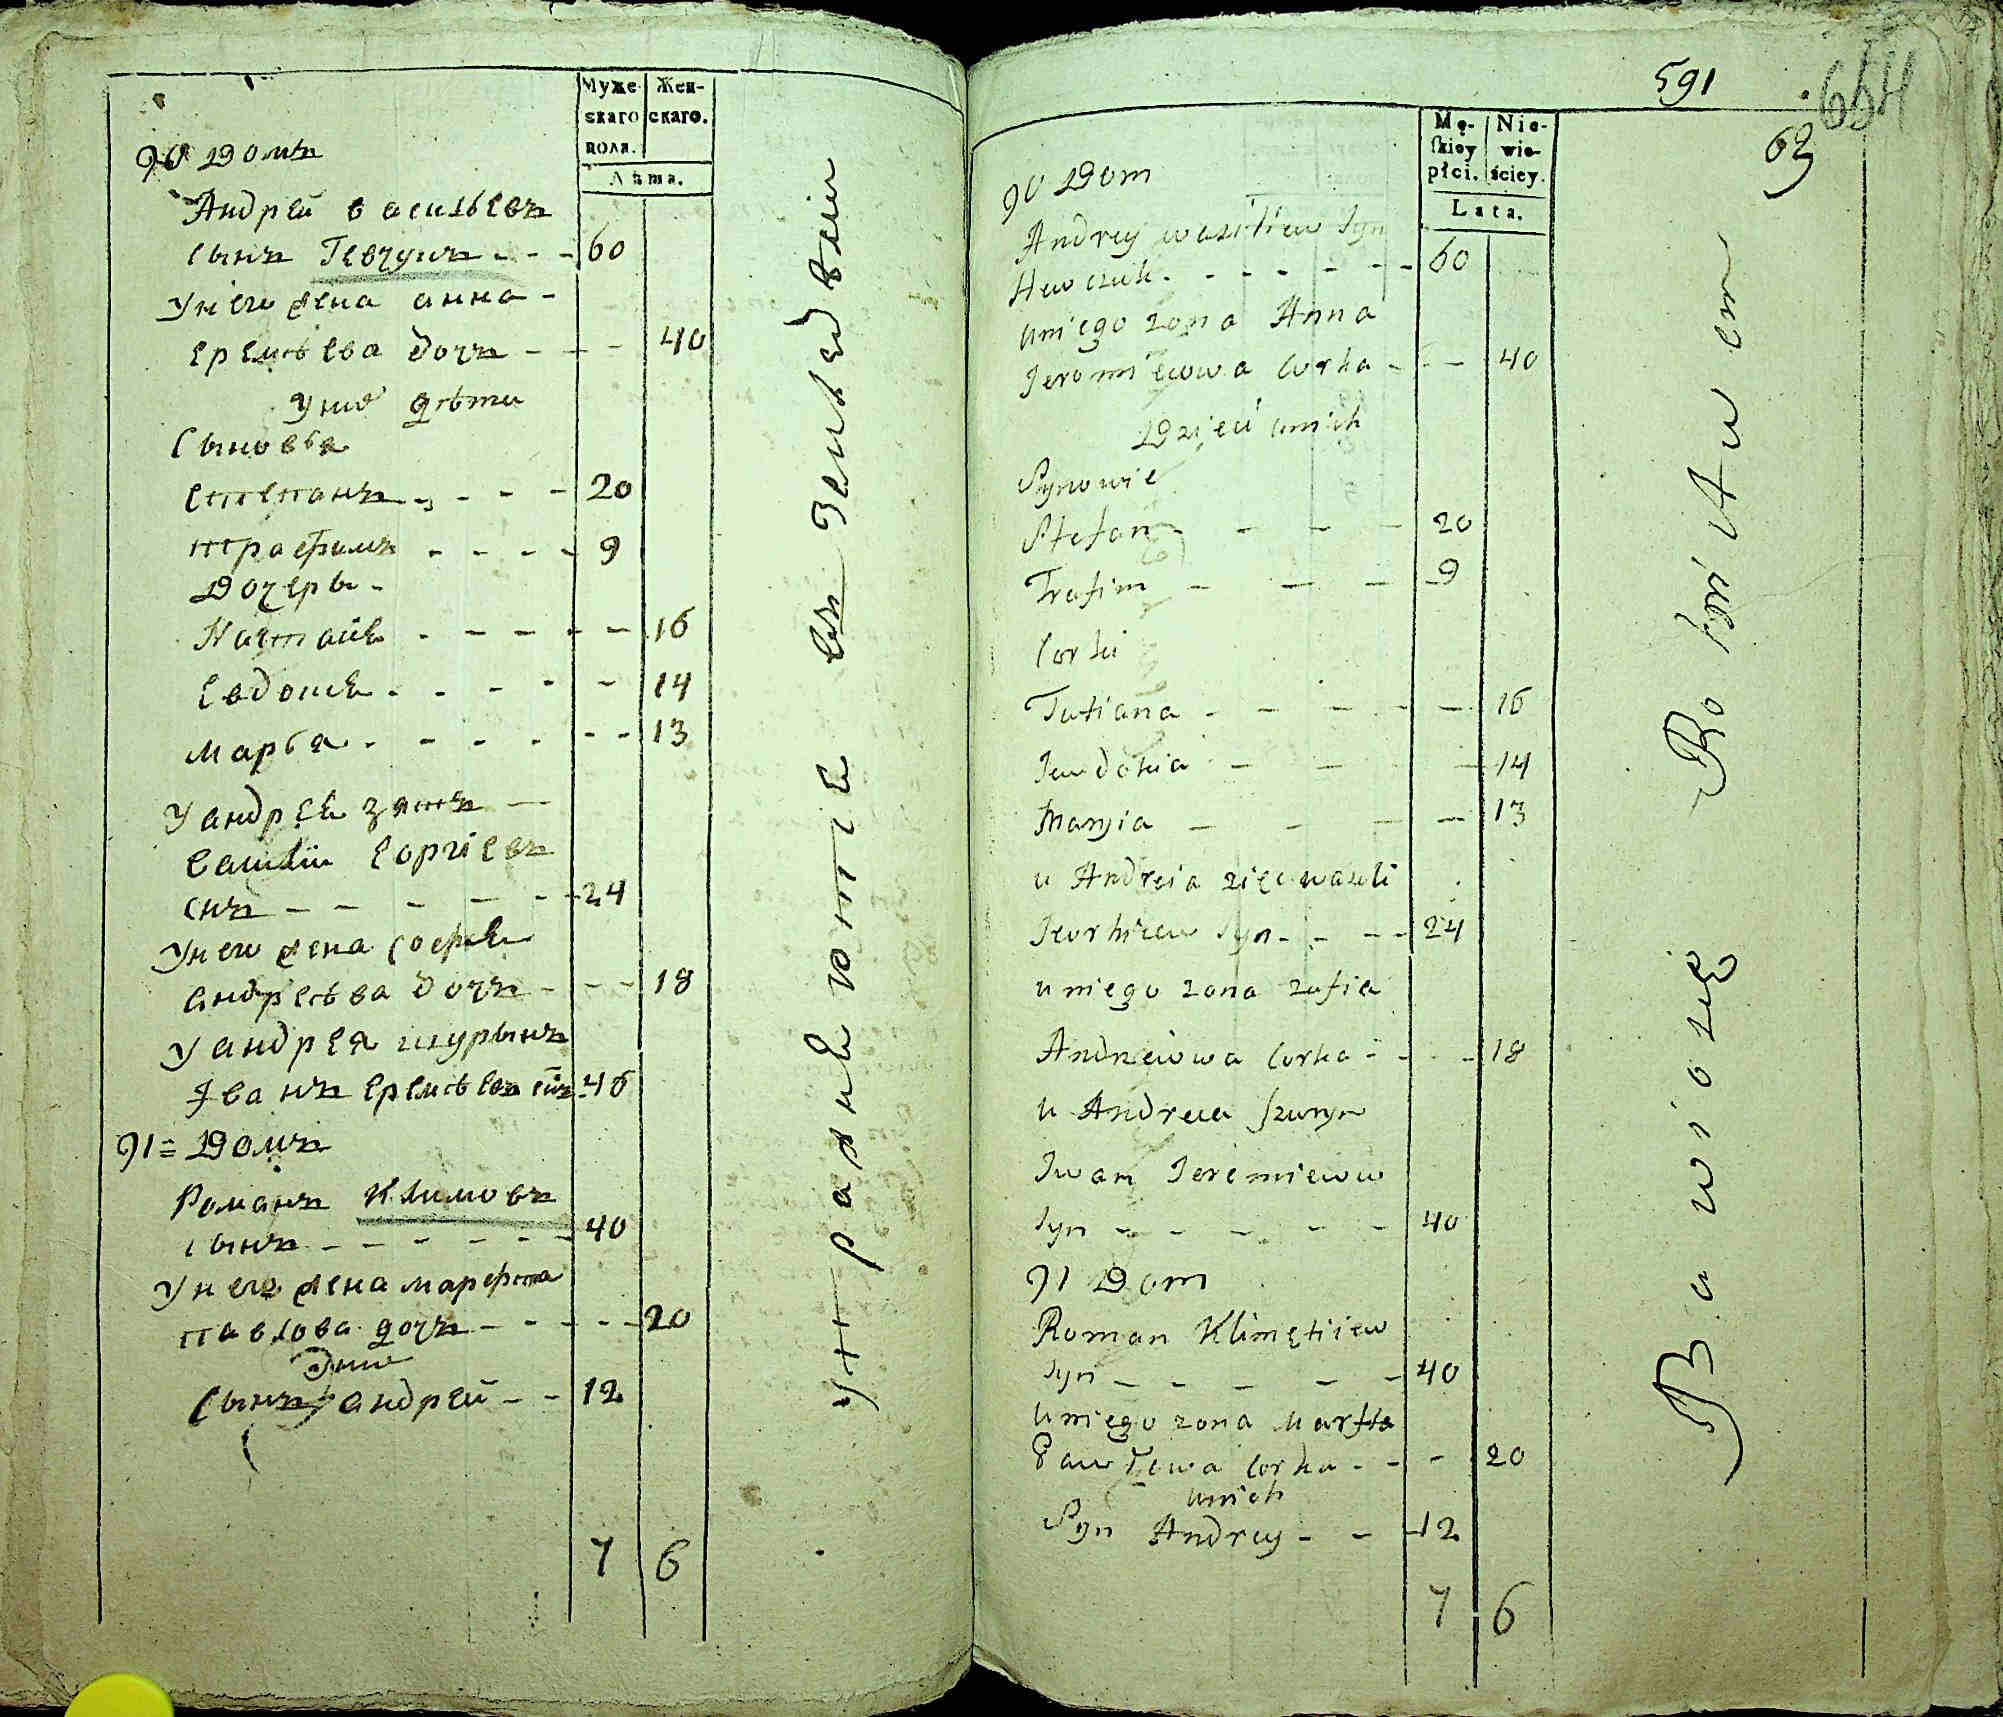 Муже-
скаго
пола.
Жен-
скаго.
Лѣта.
90 Домъ
Андрей Васильевъ
сынъ Гевчукъ - - - 60
У него жена Анна -
Еремѣева дочъ - - - 40
У них дѣти
Сыновья
Степанъ - - - - 20
Трафимъ - - - - 9
Дочеры -
Евдокия - - - - - 14
Марья - - - - - - 13
У Андрея зять -
Василiй Еоргiевъ
снъ - - - - - - 24
У него жена Софья
Андреѣва дочъ - - - 18
У Андрея шурынъ
Иванъ Еремѣевъ снъ 40
91 = Домъ
Романъ Климовъ
сынъ - - - - - - 40
У него жена Марфта
Павлова дочъ - - - - - 20
У них
Сынъ Андрей - - 12
7 6
Упражняются въ земледѣлiи
591
654
63
Mę-
skiey
płci.
Nie-
wie-
ściey.
Lata.
90 Dom
Andrey Wasiliew Syn
Hewczuk - - - - - - 60
U niego zona Anna
Jeromiewowa Corka - - - 40
Dzieci u nich
Synowie
Stefan - - - - 20
Trafim - - - - 9
Corki
Tatiana - - - - - 16
Jewdokia - - - - 14
Maryia - - - - 13
u Andreia zięc Wasili
Jeorhiew Syn - - - - 24
u niego zona Zofia
Andreiowa Corka - - - - 18
u Andreia szuryn
Iwan Jeremiewow
Syn - - - - - - 40
91 Dom
Roman Klimętiiew
Syn - - - - - 40
U niego zona Marfta
Pawłowa Corka - - - 20
u nich
Syn Andrey - - - 12
7 6
Bawio się Rolnictwem